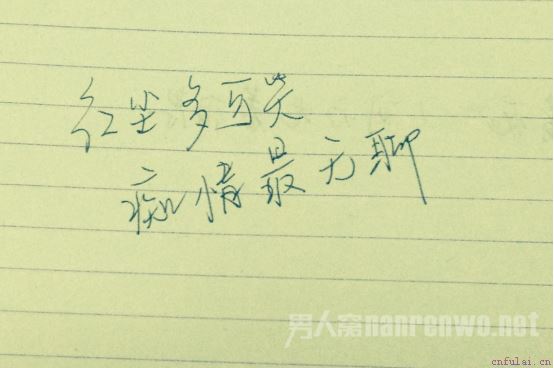 红尘多可笑
痴情最无聊
男人窝nanrenwo.net
cnfulai.cn